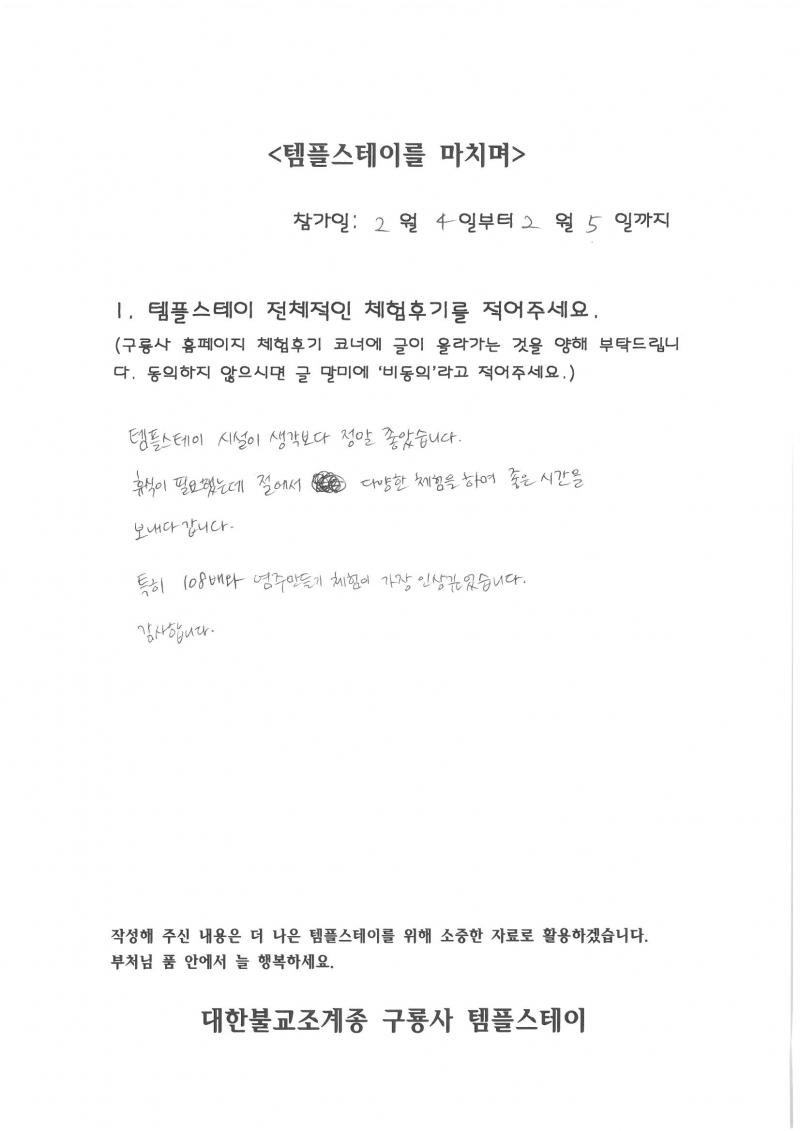 <템플스테이를 마치며>
참가일: 2 월 4 일부터 2 월 5 일까지
1. 템플스테이 전체적인 체험후기를 적어주세요.
(구룡사 홈페이지 체험후기 코너에 글이 올라가는 것을 양해 부탁드립니
다. 동의하지 않으시면 글 말미에 '비동의'라고 적어주세요.)
템플스테이 시설이 생각보다 정말 좋았습니다.
휴식이 필요했는데 절에서 다양한 체험을 하며 좋은 시간을
보내다 갑니다.
특히 108배와 염주만들기 체험이 가장 인상깊었습니다.
감사합니다.
작성해 주신 내용은 더 나은 템플스테이를 위해 소중한 자료로 활용하겠습니다.
부처님 품 안에서 늘 행복하세요.
대한불교조계종 구룡사 템플스테이